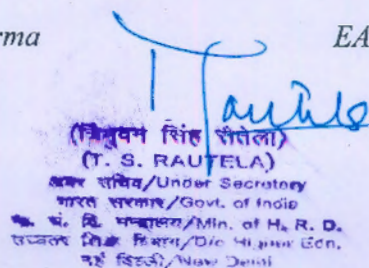 rma EA
Rautela
(त्रिभुवन सिंह रौतेला)
(T. S. RAUTELA)
अवर सचिव/Under Secretary
भारत सरकार/Govt. of India
मा. सं. वि. मन्त्रालय/Min. of H. R. D.
उच्चतर शिक्षा विभाग/D/o Higher Edn.
नई दिल्ली/New Delhi